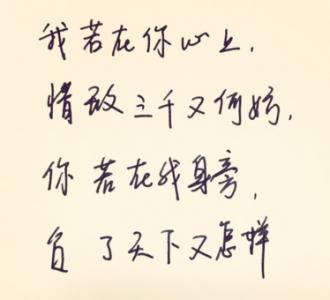 我若在你心上,
情敌三千又何妨,
你若在我身旁,
负了天下又怎样